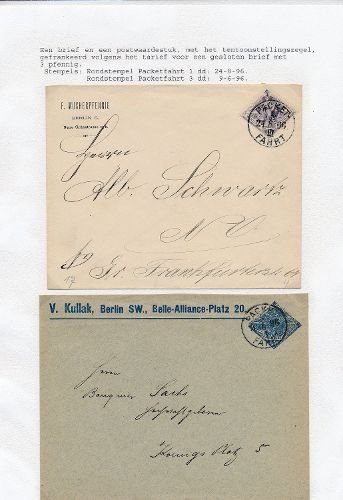 Een brief en een postwaardestuk, met het tentoonstellingsregel,
gefrankeerd volgens het tarief voor een gesloten brief met
3 pfennig.
Stempels: Rondstempel Packetfahrt 1 dd: 24-8-96.
Rondstempel Packetfahrt 3 dd: 9-6-96.
F. WUCHERPFENNIG
BERLIN C.
PACKET
24 8 96
FAHRT
Herrn
Alb. Schwartz
N. W.
Gr. Frankfurterstr
V. Kullak, Berlin SW., Belle-Alliance-Platz 20.
PACKET
96
FAHRT
Herrn
Banquier Sachs
Hochwohlgeboren
Königs Platz 5